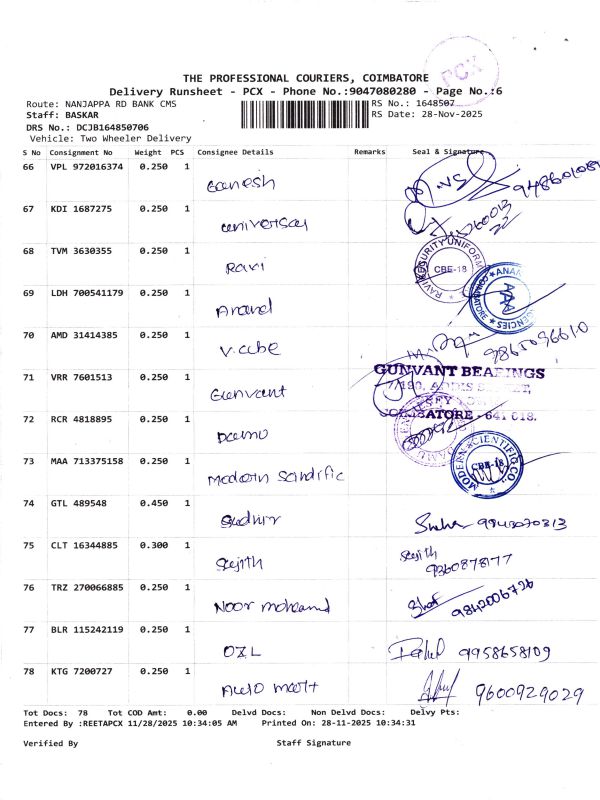 PCX
THE PROFESSIONAL COURIERS, COIMBATORE
Delivery Runsheet - PCX - Phone No.:9047080280 - Page No.:6
Route: NANJAPPA RD BANK CMS RS No.: 1648507
Staff: BASKAR RS Date: 28-Nov-2025
DRS No.: DCJB164850706
Vehicle: Two Wheeler Delivery
S No Consignment No Weight PCS Consignee Details Remarks Seal & Signature
66 VPL 972016374 0.250 1
Ganesh
67 KDI 1687275 0.250 1
universal
68 TVM 3630355 0.250 1
Ravi RAVI SECURITY UNIFORM CBE-18
69 LDH 700541179 0.250 1
Anand COIMBATORE AGENCIES
70 AMD 31414385 0.250 1
V.cube
71 VRR 7601513 0.250 1 GUNVANT BEARINGS
Gunvant
COIMBATORE - 641 018.
72 RCR 4818895 0.250 1
Damu
73 MAA 713375158 0.250 1
Modern Scindific MODERN SCIENTIFIC CO. CBE-18
74 GTL 489548 0.450 1
Sudhir
75 CLT 16344885 0.300 1
Sejith Sejith
9360878177
76 TRZ 270066885 0.250 1
Noor moheamd 9842006726
77 BLR 115242119 0.250 1
OZL Rahul 9958658109
78 KTG 7200727 0.250 1
Auto mart 9600929029
Tot Docs: 78 Tot COD Amt: 0.00 Delvd Docs: Non Delvd Docs: Delvy Pts:
Entered By :REETAPCX 11/28/2025 10:34:05 AM Printed On: 28-11-2025 10:34:31
Verified By Staff Signature